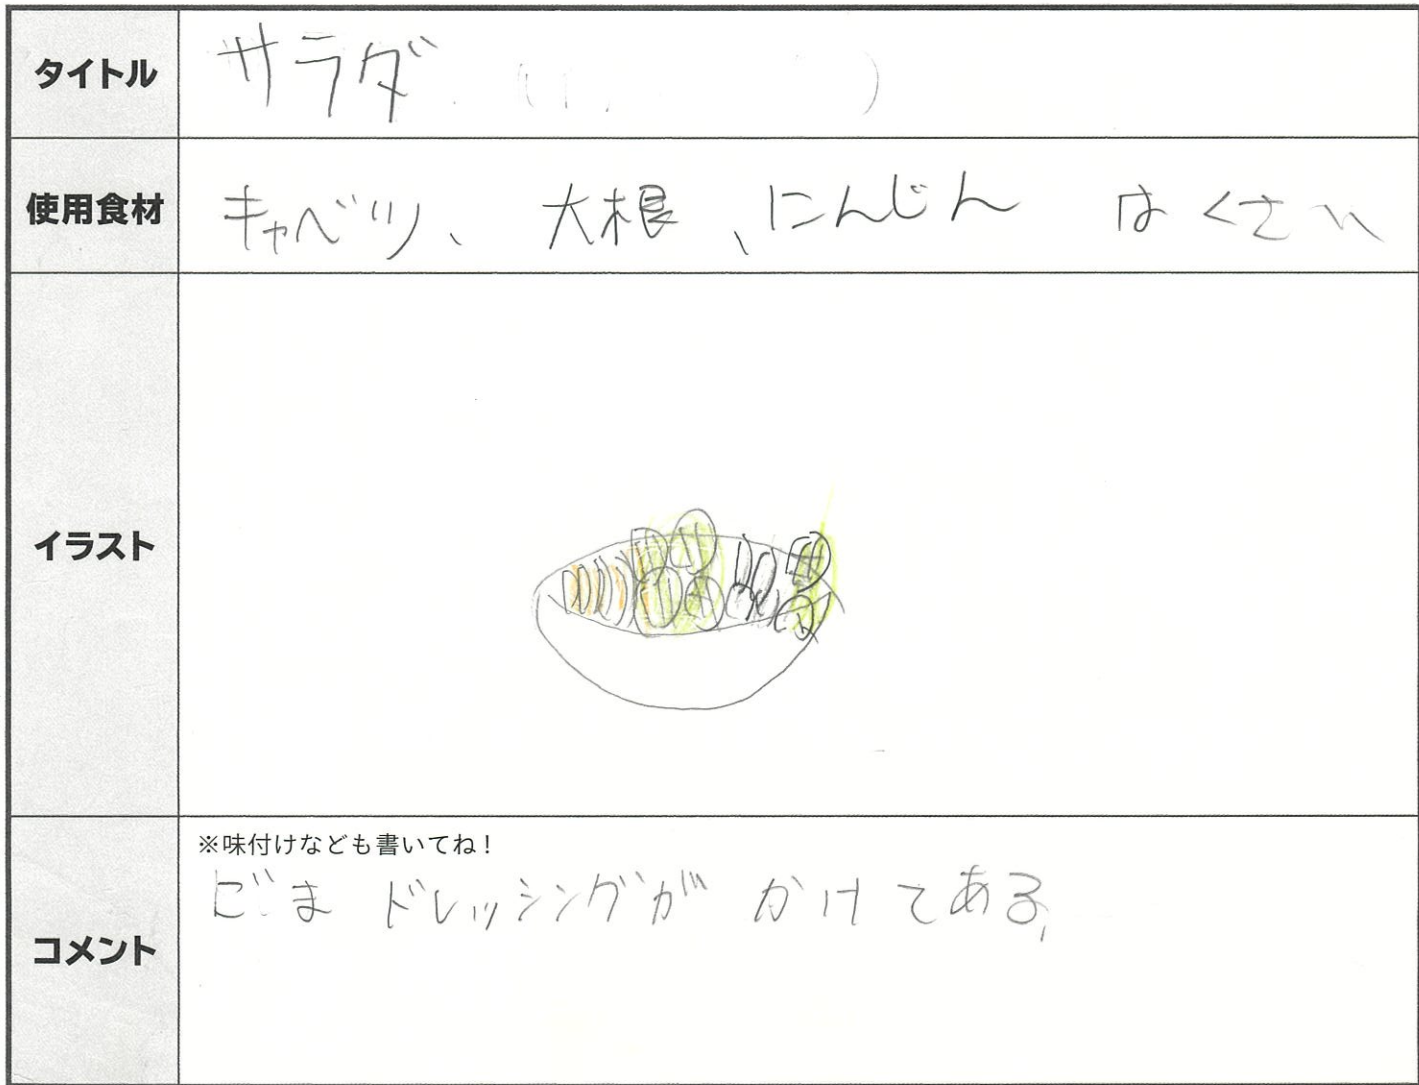 タイトル
サラダ
使用食材
キャベツ、大根、にんじん はくさい
イラスト
コメント
※味付けなども書いてね！
ごま ドレッシングが かけてある。